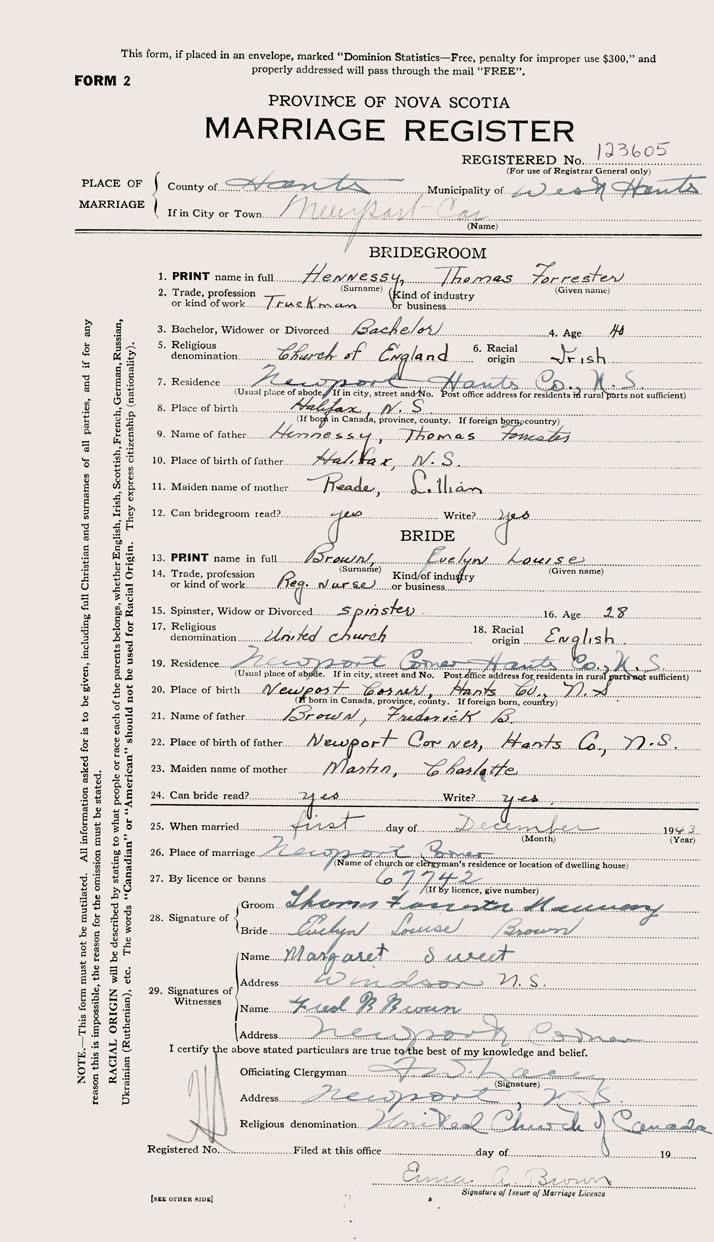 This form, if placed in an envelope, marked "Dominion Statistics—Free, penalty for improper use $300," and
properly addressed will pass through the mail "FREE".
FORM 2
PROVINCE OF NOVA SCOTIA
MARRIAGE REGISTER
REGISTERED No. 123605
(For use of Registrar General only)
PLACE OF MARRIAGE
County of Hants Municipality of West Hants
If in City or Town Newport Cor
(Name)
BRIDEGROOM
1. PRINT name in full Hennessy, Thomas Forrester
(Surname) (Given name)
2. Trade, profession or kind of work Truckman Kind of industry or business
3. Bachelor, Widower or Divorced Bachelor 4. Age 40
5. Religious denomination Church of England 6. Racial origin Irish
7. Residence Newport Hants Co., N.S.
(Usual place of abode. If in city, street and No. Post office address for residents in rural parts not sufficient)
8. Place of birth Halifax, N.S
(If born in Canada, province, county. If foreign born, country)
9. Name of father Hennessy, Thomas Forrester
10. Place of birth of father Halifax, N.S.
11. Maiden name of mother Reade, Lillian
12. Can bridegroom read? yes Write? yes
BRIDE
13. PRINT name in full Brown, Evelyn Louise
(Surname) (Given name)
14. Trade, profession or kind of work Reg. nurse Kind of industry or business
15. Spinster, Widow or Divorced spinster 16. Age 28
17. Religious denomination United church 18. Racial origin English
19. Residence Newport Corner Hants Co., N.S.
(Usual place of abode. If in city, street and No. Post office address for residents in rural parts not sufficient)
20. Place of birth Newport Corner, Hants Co., N.S
(If born in Canada, province, county. If foreign born, country)
21. Name of father Brown, Frederick B.
22. Place of birth of father Newport Corner, Hants Co., N.S.
23. Maiden name of mother Martin, Charlotte
24. Can bride read? yes Write? yes.
25. When married first day of December 1943
(Month) (Year)
26. Place of marriage Newport Corner
(Name of church or clergyman's residence or location of dwelling house)
27. By licence or banns 67742
(If by licence, give number)
28. Signature of
Groom Thomas Forrester Hennessy
Bride Evelyn Louise Brown
29. Signatures of Witnesses
Name Margaret Sweet
Address Windsor N.S.
Name Fred B Brown
Address Newport Corner
I certify the above stated particulars are true to the best of my knowledge and belief.
Officiating Clergyman
(Signature)
Address Newport, N.S.
Religious denomination United Church of Canada
Registered No. Filed at this office day of 19
Erma A. Brown
Signature of Issuer of Marriage Licence
[SEE OTHER SIDE]
NOTE.—This form must not be mutilated. All information asked for is to be given, including full Christian and surnames of all parties, and if for any
reason this is impossible, the reason for the omission must be stated.
RACIAL ORIGIN will be described by stating to what people or race each of the parents belongs, whether English, Irish, Scottish, French, German, Russian,
Ukrainian (Ruthenian), etc. The words "Canadian" or "American" should not be used for Racial Origin. They express citizenship (nationality).